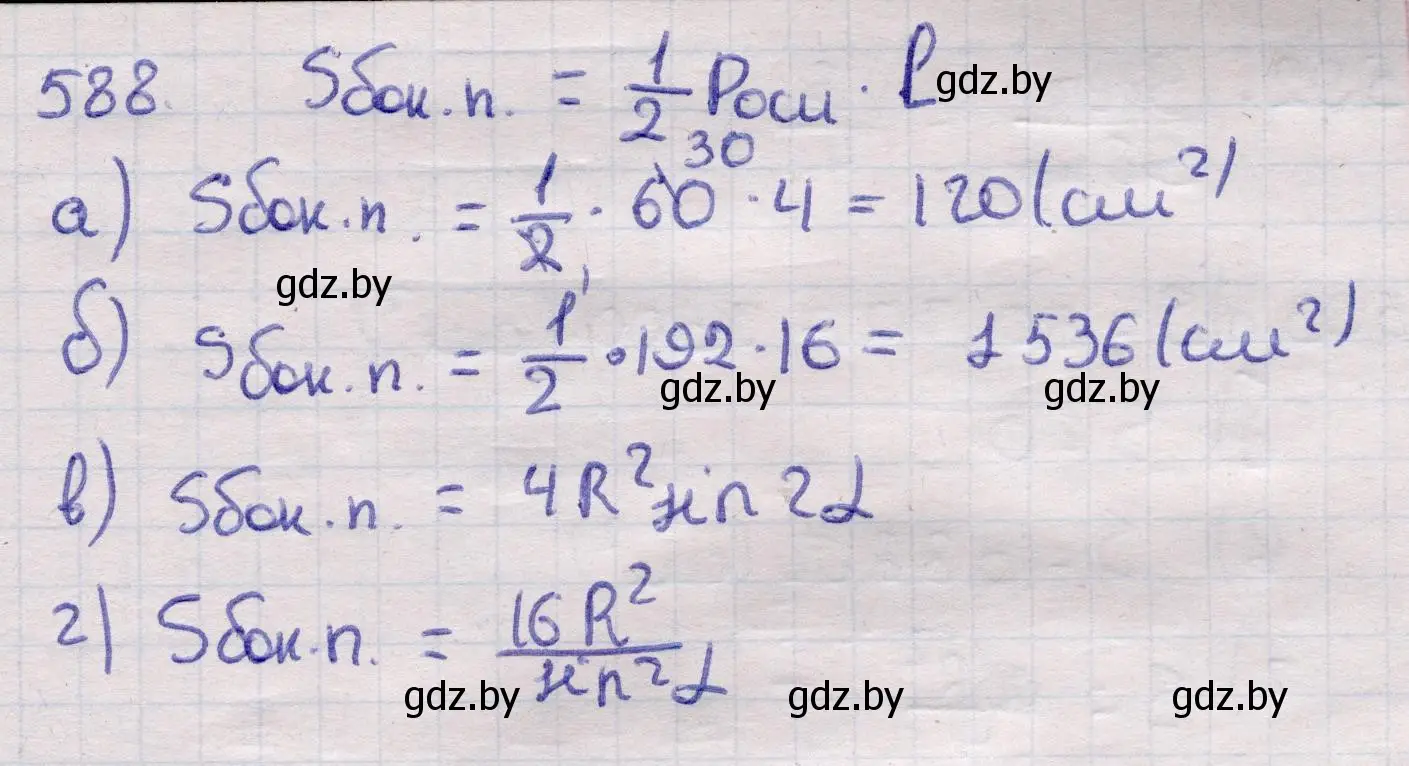 588. Sбок.п. = 1/2 Pосн · l gdz.by
а) Sбок.п. = 1/2 · 60 30 · 4 = 120 (см²)
gdz.by
б) Sбок.п. = 1/2 · 192 · 16 = 1536 (см²)
gdz.by gdz.by
в) Sбок.п. = 4R² sin 2α
г) Sбок.п. = 16R² / sin² α
gdz.by gdz.by gdz.by